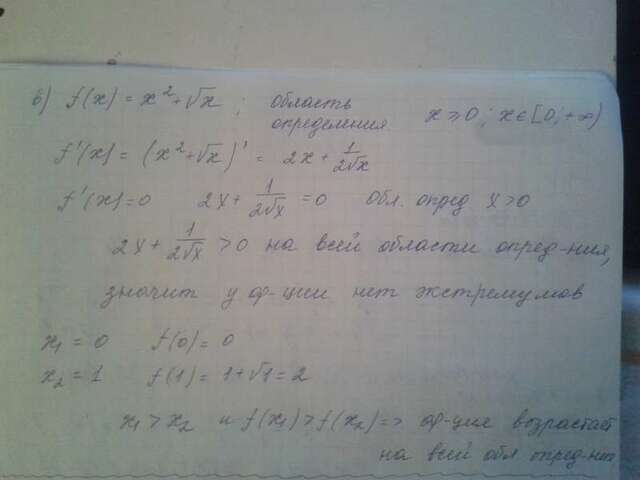 в) f(x) = x² + √x ; область определения x ≥ 0 ; x ∈ [0; +∞)
f'(x) = (x² + √x)' = 2x + 1/(2√x)
f'(x) = 0 2x + 1/(2√x) = 0 обл. опред x > 0
2x + 1/(2√x) > 0 на всей области опред-ния,
значит у ф-ции нет экстремумов
x₁ = 0 f(0) = 0
x₂ = 1 f(1) = 1 + √1 = 2
x₁ > x₂ и f(x₁) > f(x₂) => ф-ция возрастает
на всей обл. опред-ния